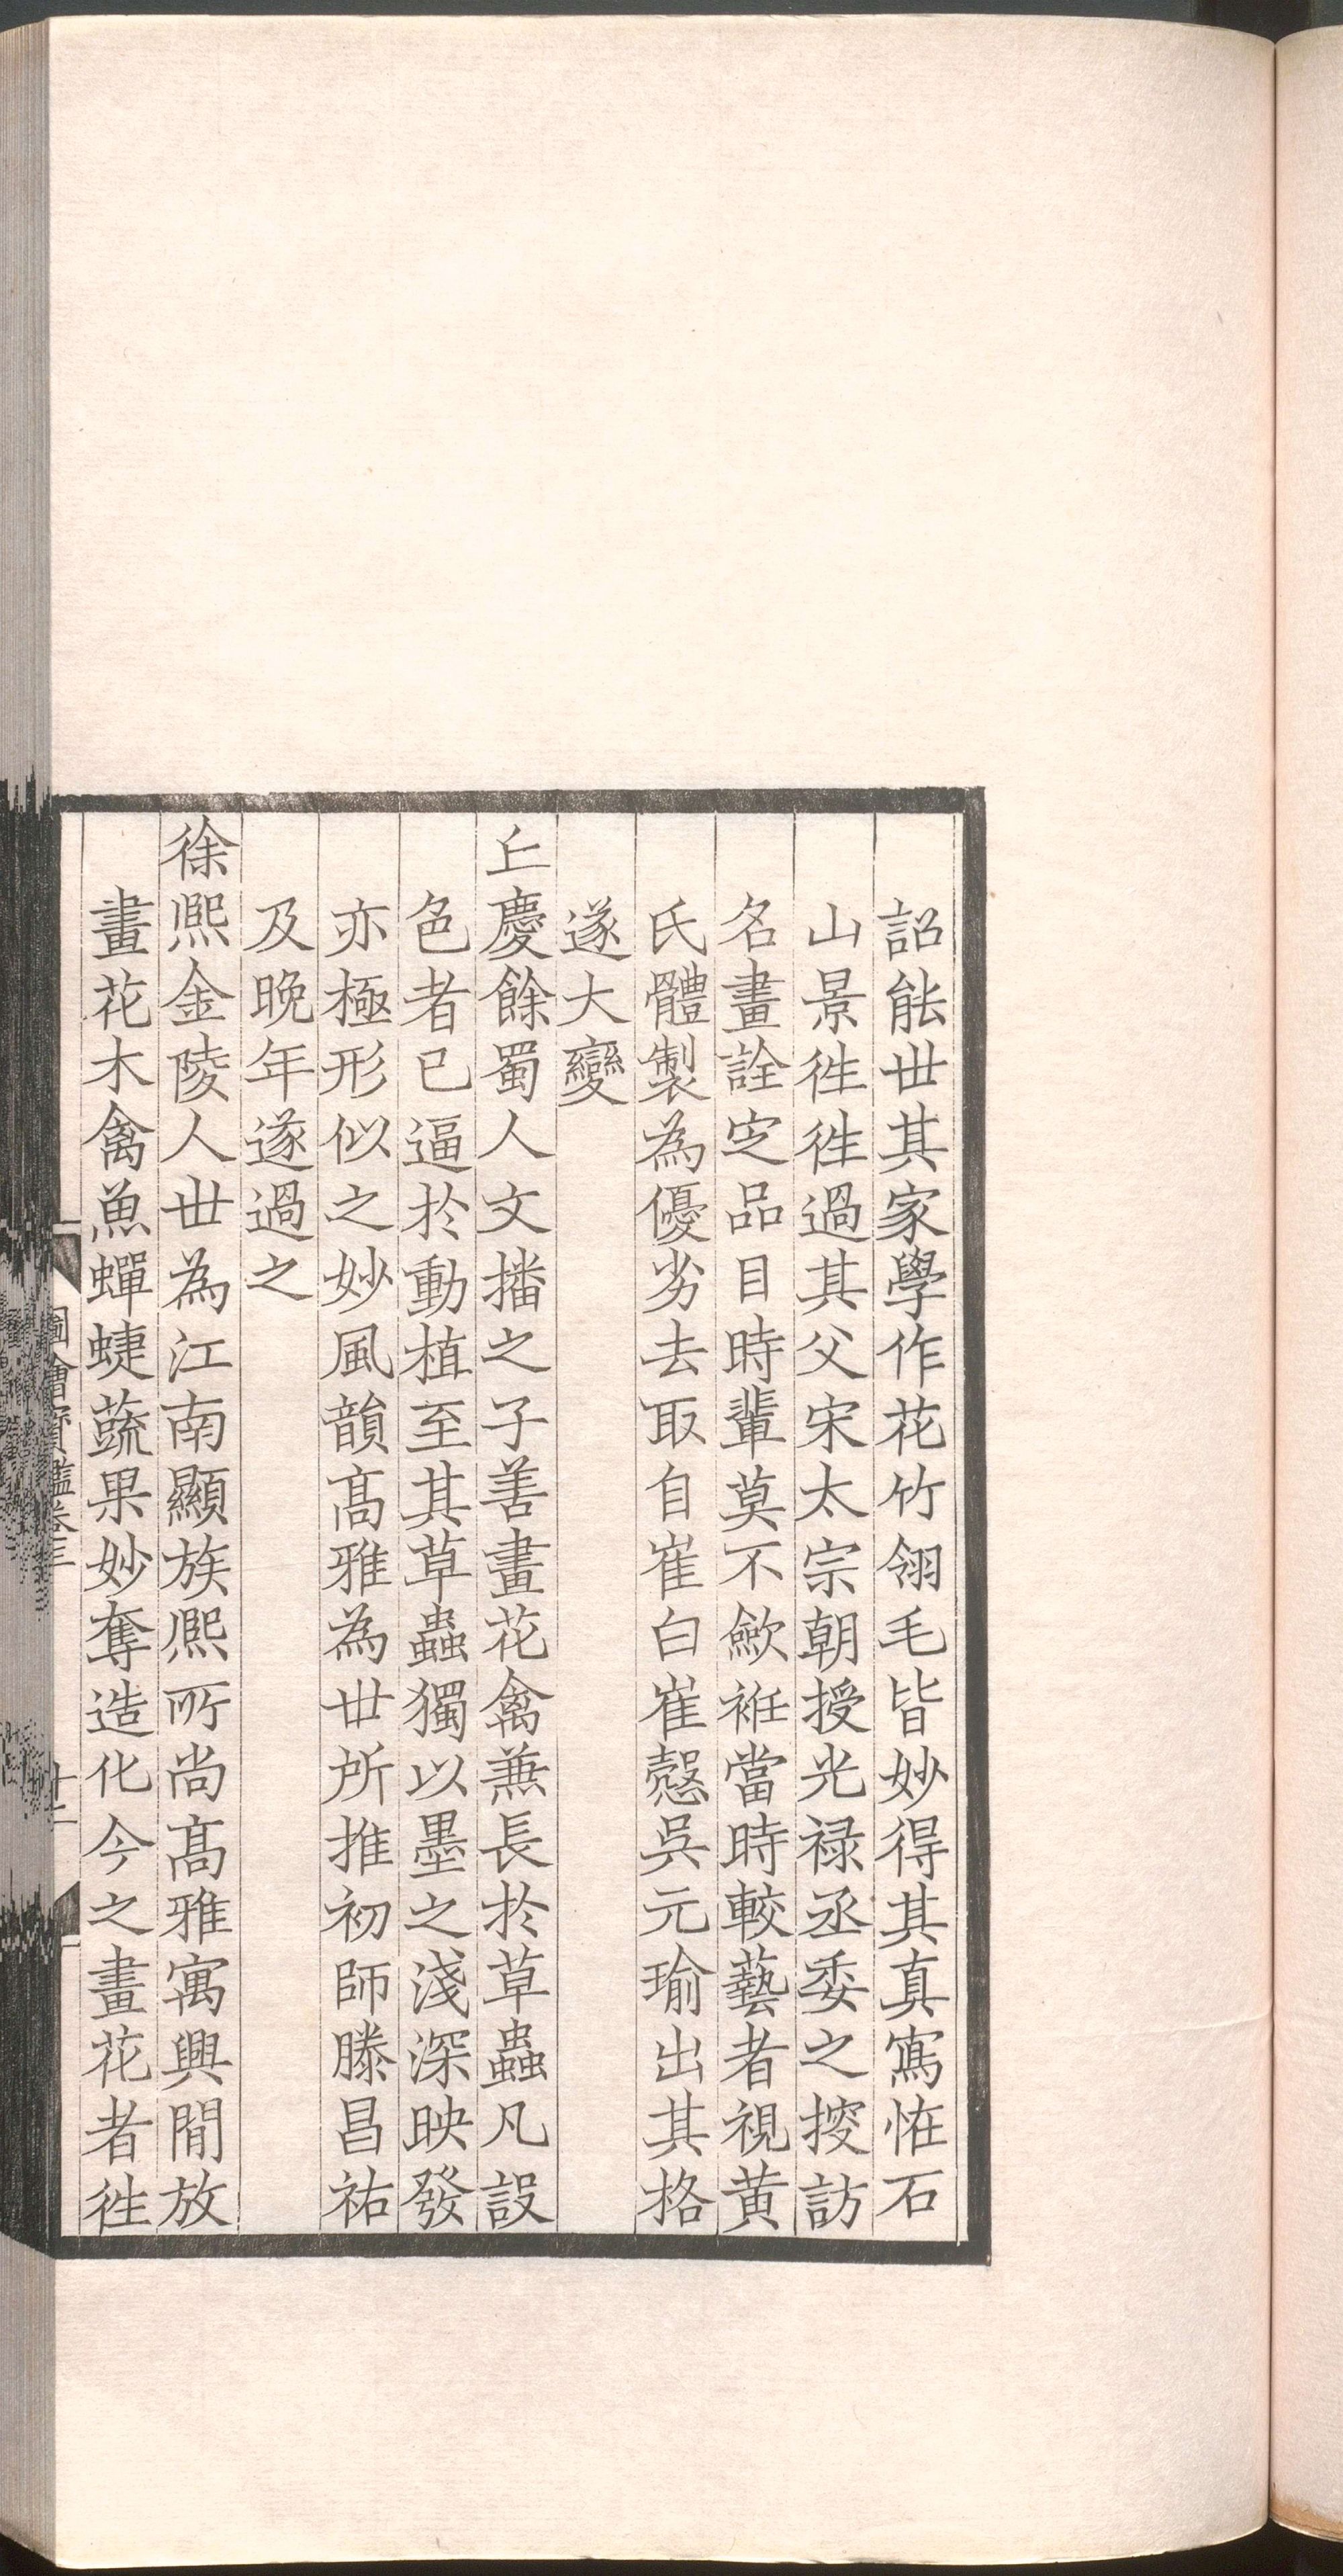 詔能世其家學作花竹翎毛皆妙得其真寫恠石
山景徃徃過其父宋太宗朝授光禄丞委之搜訪
名畫詮定品目時輩莫不歛袵當時較藝者視黄
氏體製為優劣去取自崔白崔慤吳元瑜出其格
遂大變
丘慶餘蜀人文播之子善畫花禽兼長於草蟲凡設
色者已逼於動植至其草蟲獨以墨之淺深映發
亦極形似之妙風韻髙雅為世所推初師滕昌祐
及晚年遂過之
徐熈金陵人世為江南顯族熈所尚髙雅寓興閒放
畫花木禽魚蟬蜨蔬果妙奪造化今之畫花者徃
圖繪寶鑑卷三
十二